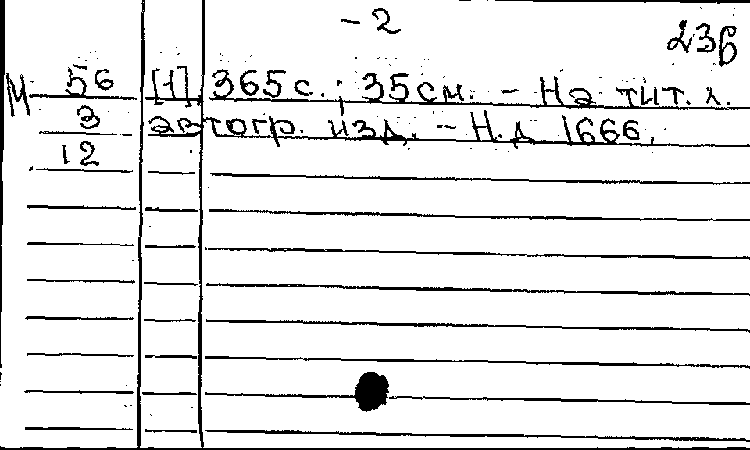 - 2
236
М 56 [1], 365 с. ; 35 см. - На тит. л.
3 автогр. изд. - Н.д. 1666.
12